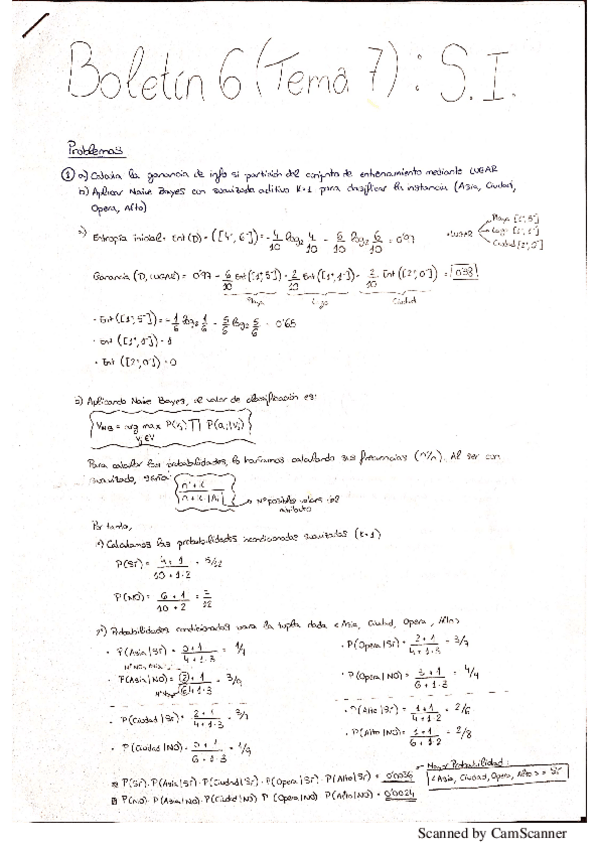 Boletín 6 (Tema 7): S.I.
Problemas
1 a) Calcula la ganancia de info si partición del conjunto de entrenamiento mediante LUGAR
b) Aplicar Naive Bayes con suavizado aditivo k=1 para clasificar la instancia (Asia, Ciudad,
Opera, Alto)
a) Entropía inicial = Ent(D) = ([4+, 6-]) = -4/10 log2 4/10 - 6/10 log2 6/10 = 0'97
LUGAR
Playa [1+, 5-]
Lago [1+, 1-]
Ciudad [2+, 0-]
Ganancia (D, LUGAR) = 0'97 - 6/10 Ent([1+, 5-]) - 2/10 Ent([1+, 1-]) - 2/10 Ent([2+, 0-]) = 0'38
Playa Lago Ciudad
· Ent([1+, 5-]) = -1/6 log2 1/6 - 5/6 log2 5/6 = 0'65
· Ent([1+, 1-]) = 1
· Ent([2+, 0-]) = 0
b) Aplicando Naive Bayes, el valor de clasificación es:
VNB = arg max P(vj) ∏ P(ai|vj)
vj∈V
Para calcular las probabilidades, lo haríamos calculando sus frecuencias (n'/n). Al ser con
suavizado, sería:
n' + k / n + k |Ai|
Nº posibles valores del
atributo
Por tanto,
1º) Calculamos las probabilidades incondicionadas suavizadas (k=1)
P(Sí) = 4+1 / 10+1·2 = 5/12
P(NO) = 6+1 / 10+2 = 7/12
2º) Probabilidades condicionadas para la tupla dada <Asia, Ciudad, Opera, Alto>
· P(Asia|Sí) = / 4+1·3 = 1/7
· P(Opera|Sí) = 2+1 / 4+1·3 = 3/7
· P(Asia|NO) = 2+1 / 6+1·3 = 3/9
· P(Opera|NO) = 3+1 / 6+1·3 =
· P(Ciudad|Sí) = 2+1 / 4+1·3 = 3/7
· P(Alto|Sí) = 1+1 / 4+1·2 = 2/6
· P(Ciudad|NO) = 0+1 / 6+1·3 = 1/9
· P(Alto|NO) = 1+1 / 6+1·2 = 2/8
Mayor Probabilidad:
P(Sí) · P(Asia|Sí) · P(Ciudad|Sí) · P(Opera|Sí) · P(Alto|Sí) = 0'0036
<Asia, Ciudad, Opera, Alto> = Sí
P(NO) · P(Asia|NO) · P(Ciudad|NO) · P(Opera|NO) · P(Alto|NO) = 0'0024
Scanned by CamScanner